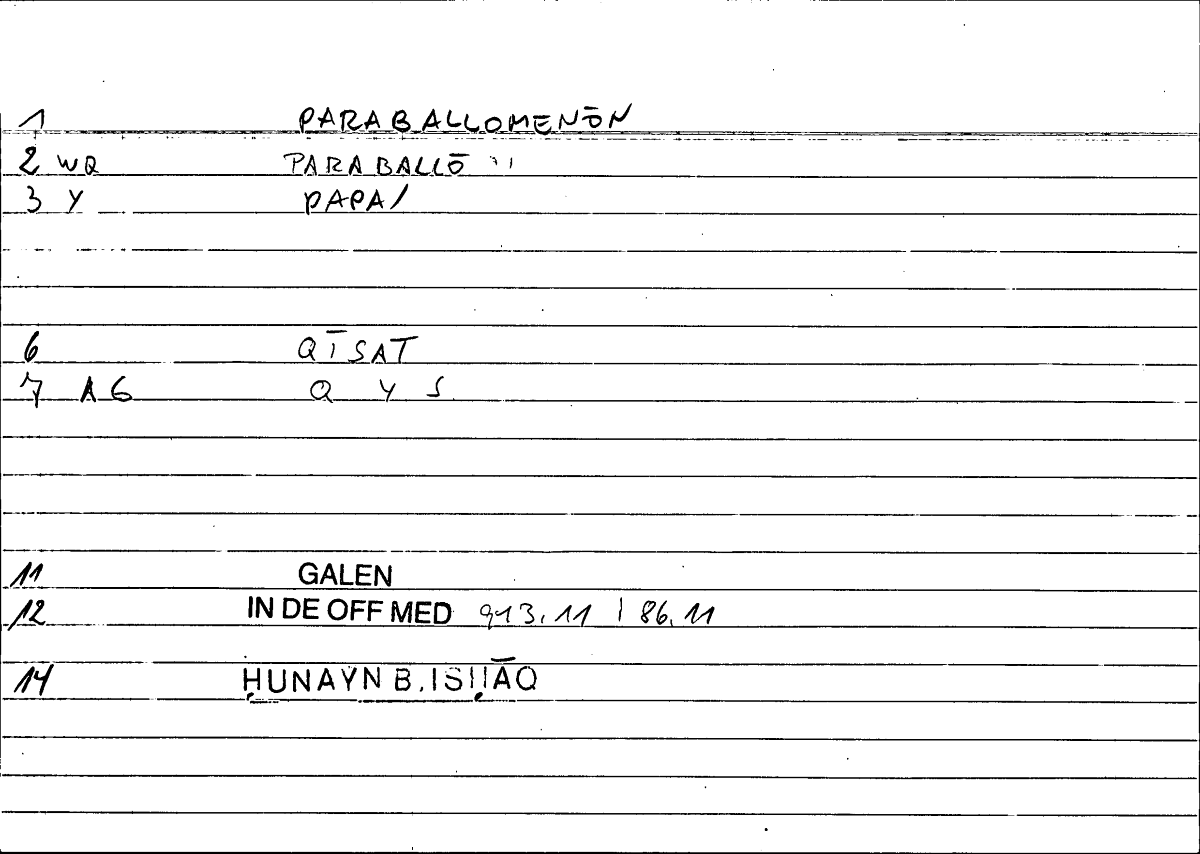 1 PARABALLOMENŌN
2 WQ PARABALLŌ
3 Y PAPA/
6 QĪSAT
7 AG Q Y S
11 GALEN
12 IN DE OFF MED 913,11 | 86,11
14 ḤUNAYN B. ISḤĀQ